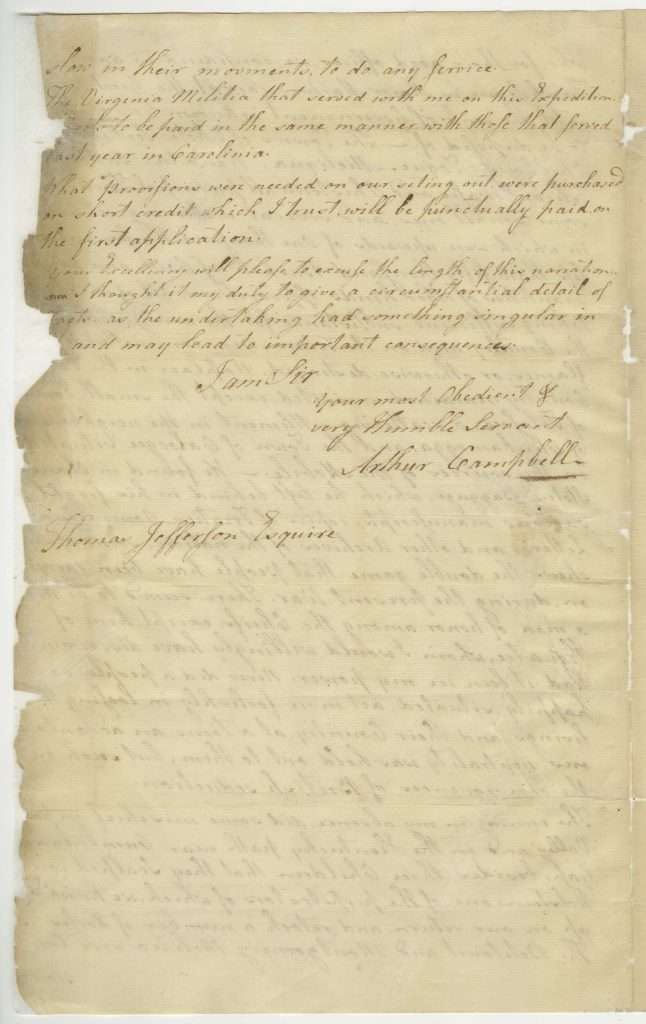 slow in their movments, to do any Service.
The Virgenia Militia that served with me on this Expedition
to be paid in the same manner with those that served
last year in Carolinia.
What Provisions were needed on our seting out were purchased
on short credit which I trust, will be punctually paid, on
the first application.
Your Excellency will please to excuse the length of this narration,
I thought it my duty to give a circumstantial detail of
facts as the undertaking had something singular in
and may lead to important consequences.
I am Sir
Your most Obedient &
very Humble Servant
Arthur Campbell
Thomas Jefferson Esquire